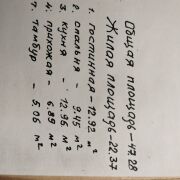 Общая площадь-47.28
Жилая площадь-22.37
1. гостинная-12.92 м²
2. спальня - 9.45 м²
3. кухня - 12.96 м²
4. прихожая - 6.89 м²
7. тамбур - 5.06 м²